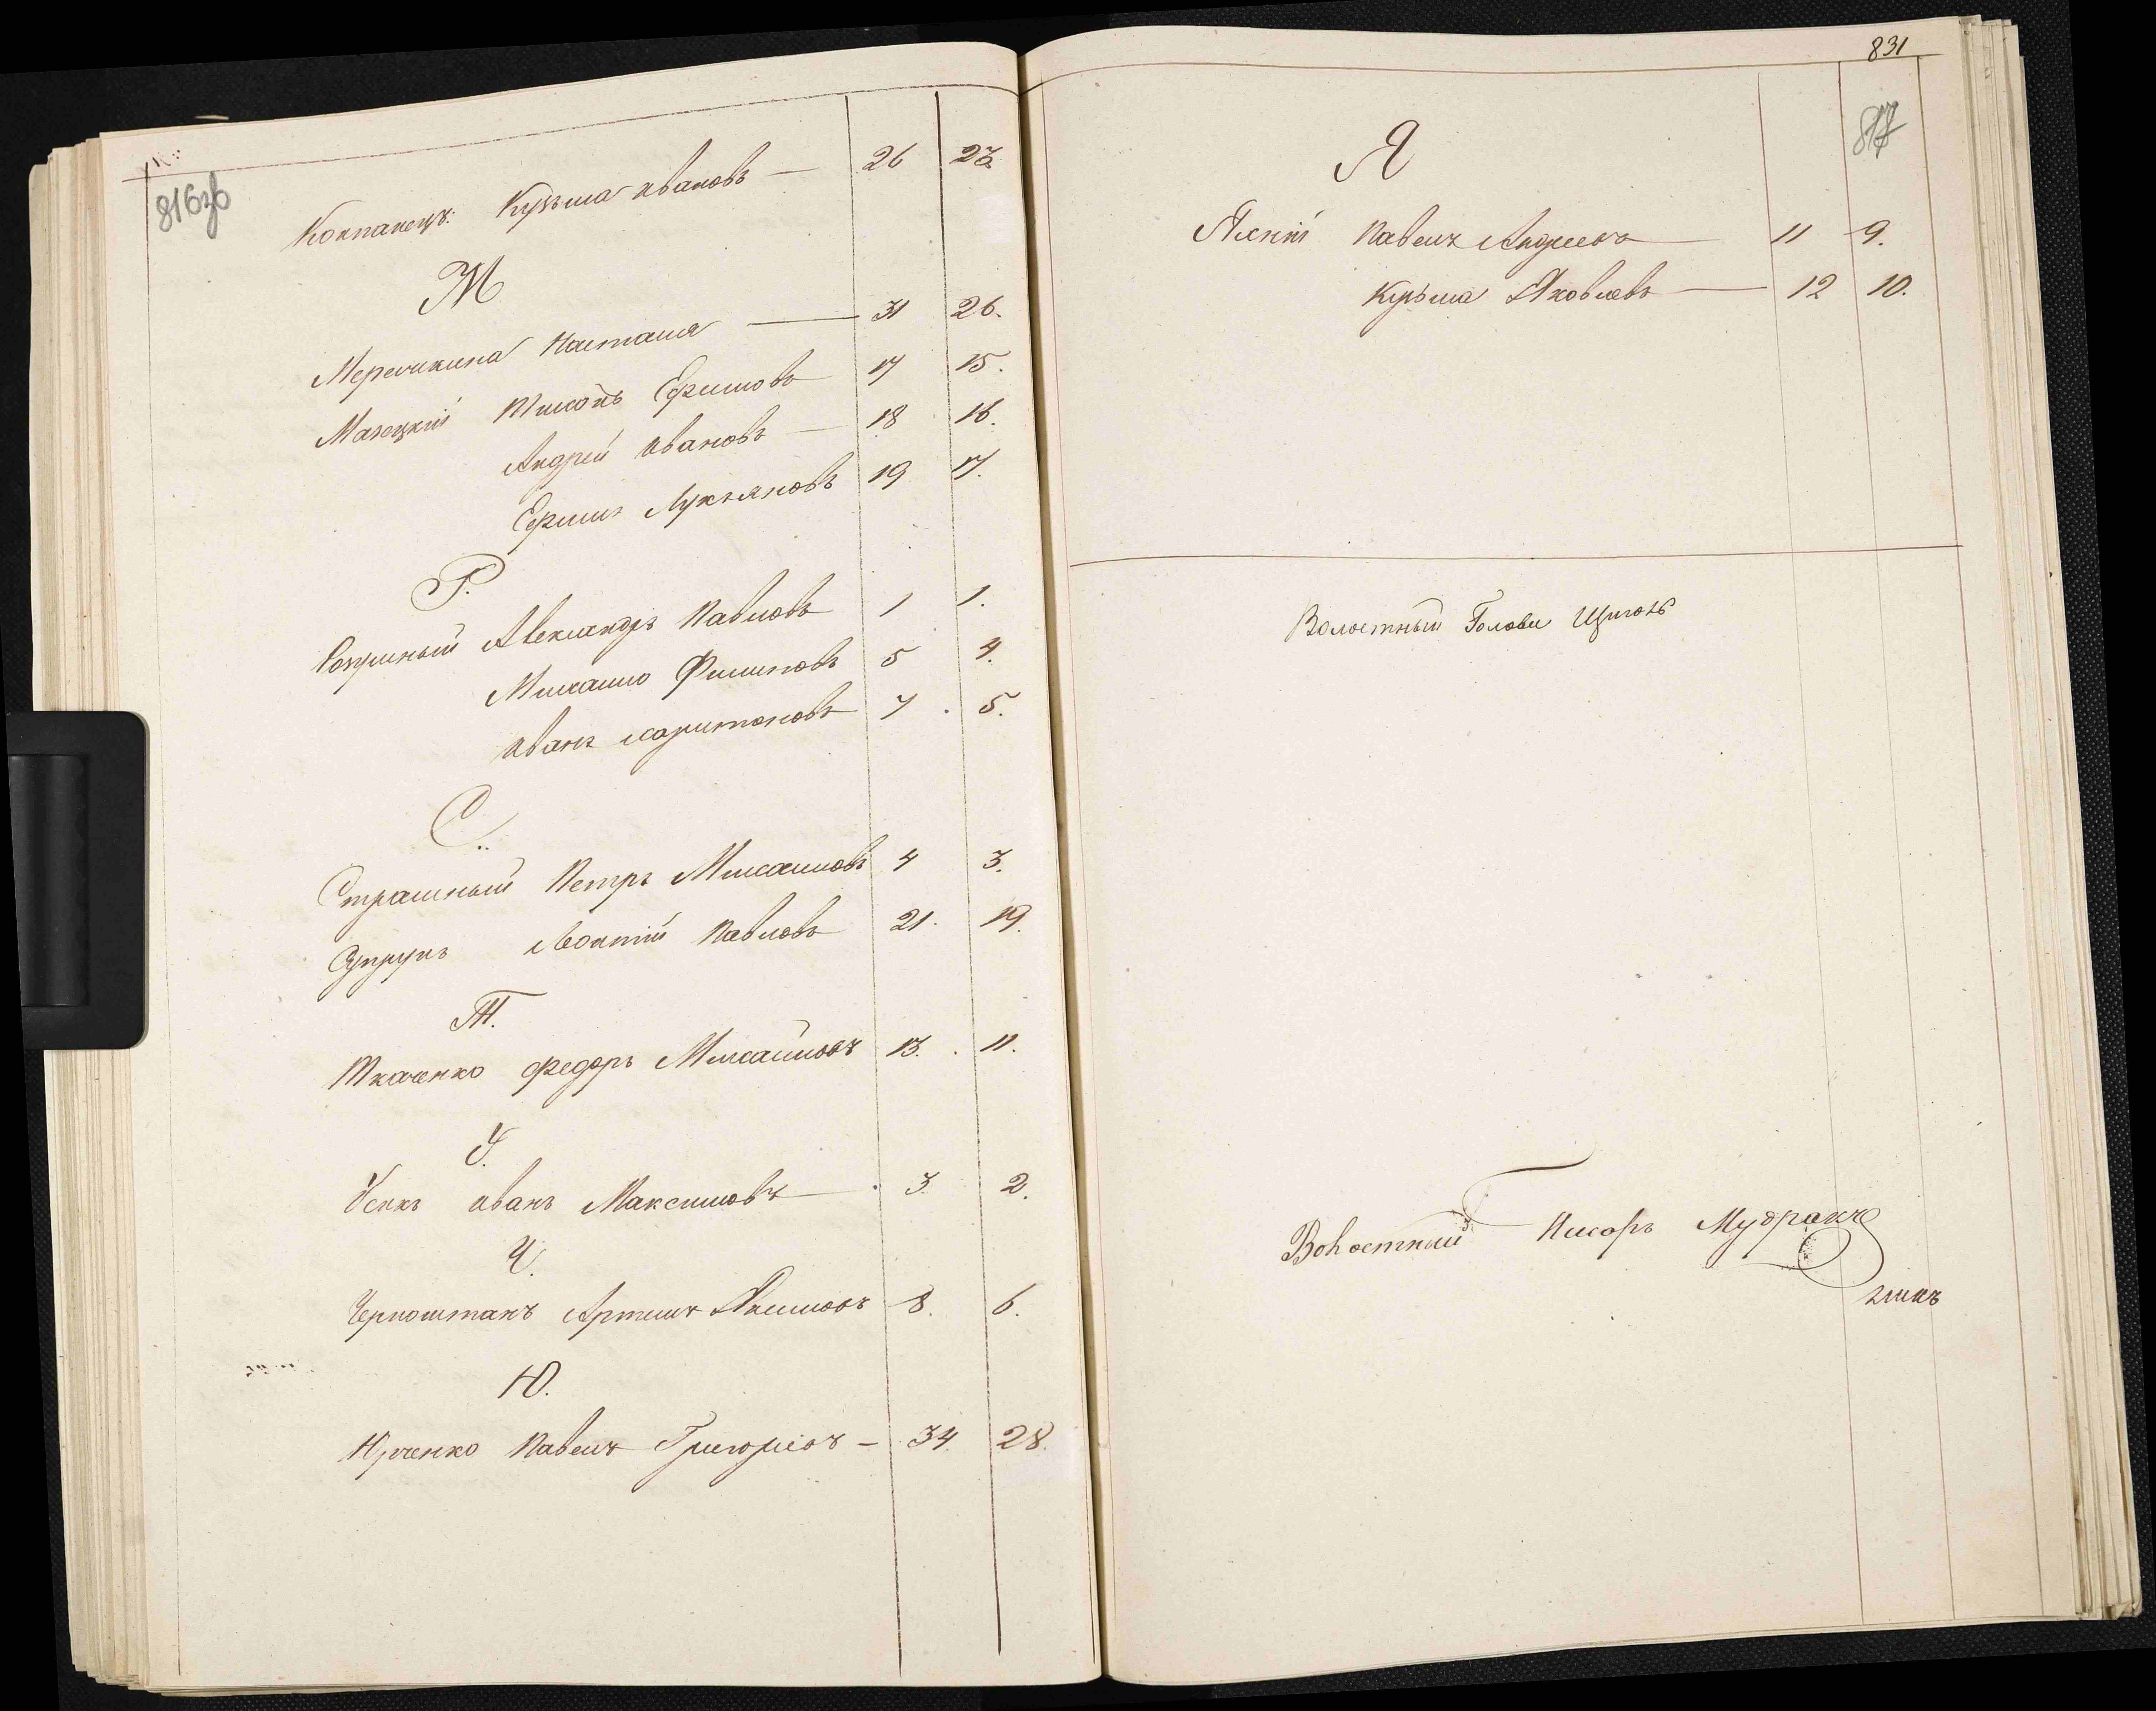 816зв
Компанецъ: Кузьма Ивановъ — 26 23.
М
Мерочкина Настасия — 31 26.
Мазецкий Тихонъ Ефимовъ 17 15.
Андрей Ивановъ — 18 16.
Ефимъ Лукьяновъ 19 17.
Р.
Розумный Александръ Павловъ 1 1.
Михаило Филиповъ 5 4.
Иванъ Харитоновъ 7 5.
С.
Страшный Петръ Михаиловъ 4 3.
Супрунъ Леонтий Павловъ 21. 19.
Т.
Ткаченко Федоръ Михайловъ 13. 11.
У.
Усикъ Иванъ Максимовъ — 3. 2.
Ч.
Черноштанъ Артемъ Якимовъ 8. 6.
Ю.
Юрченко Павелъ Григоріовъ — 34. 28.
831
817
Я
Яский Павелъ Андреевъ — 11 9.
Кузьма Яковлевъ — 12 10.
Волостный Голова
Волостный Писарь Мудракъ